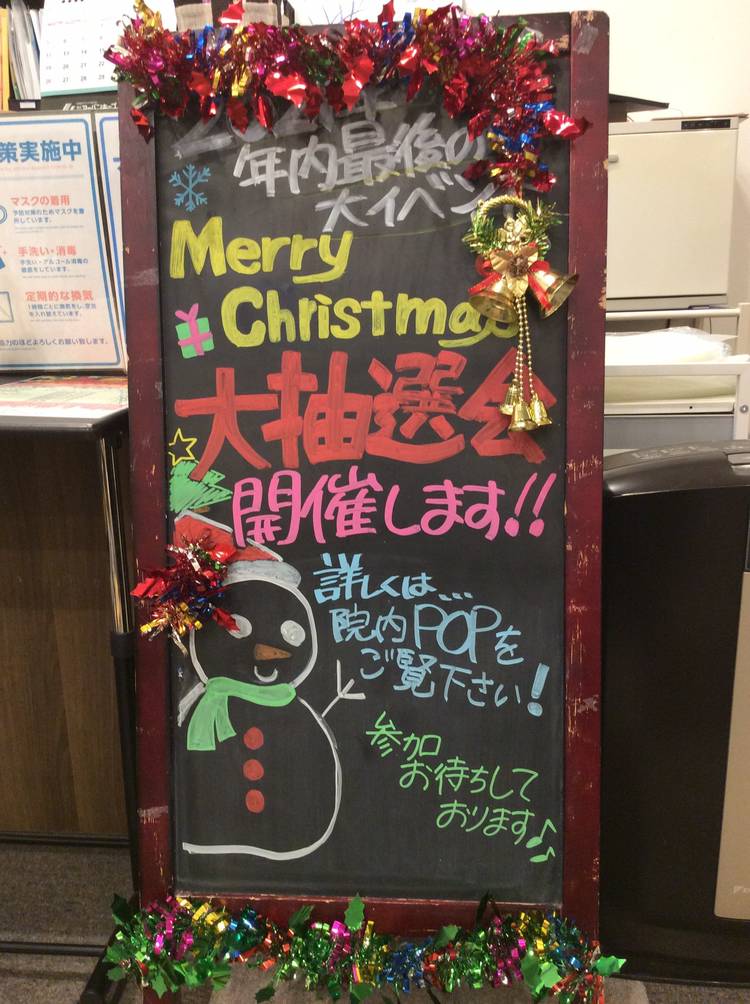 策実施中
マスクの着用
手洗い・消毒
定期的な換気
年内最後の
大イベン
Merry
Christmas
大抽選会
開催します!!
詳しくは...
院内POPを
ご覧下さい!
参加
お待ちして
おります♪